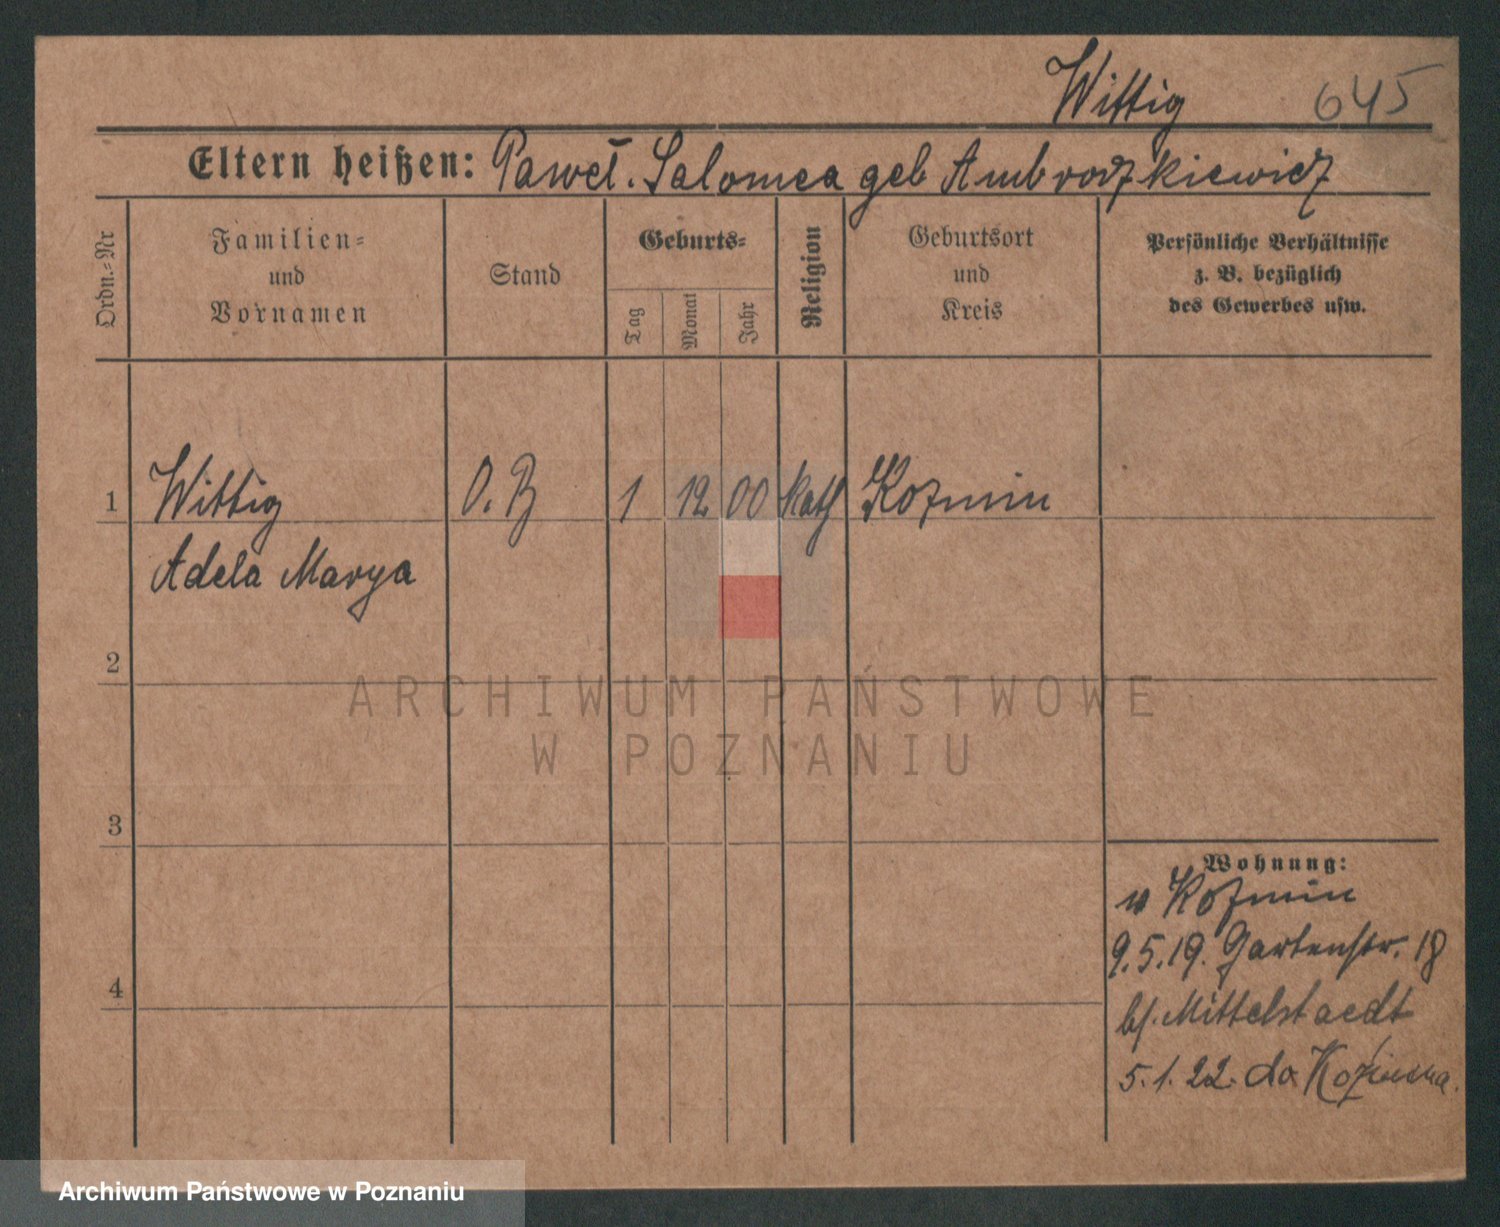 Wittig 645
Eltern heißen: Paweł. Salomea geb Ambrodzkiewicz
Ordn.-Nr
Familien-
und
Vornamen
Stand
Geburts-
Tag
Monat
Jahr
Religion
Geburtsort
und
Kreis
Persönliche Verhältnisse
z. B. bezüglich
des Gewerbes usw.
1 Wittig O. B 1 12 00 kath Kozmin
Adela Marya
2
3
4
Wohnung:
w Kozmin
9.5.19. Gartenstr. 18
bf. Mittelstaedt
5.1.22. do Koźmina.
ARCHIWUM PAŃSTWOWE
W POZNANIU
Archiwum Państwowe w Poznaniu